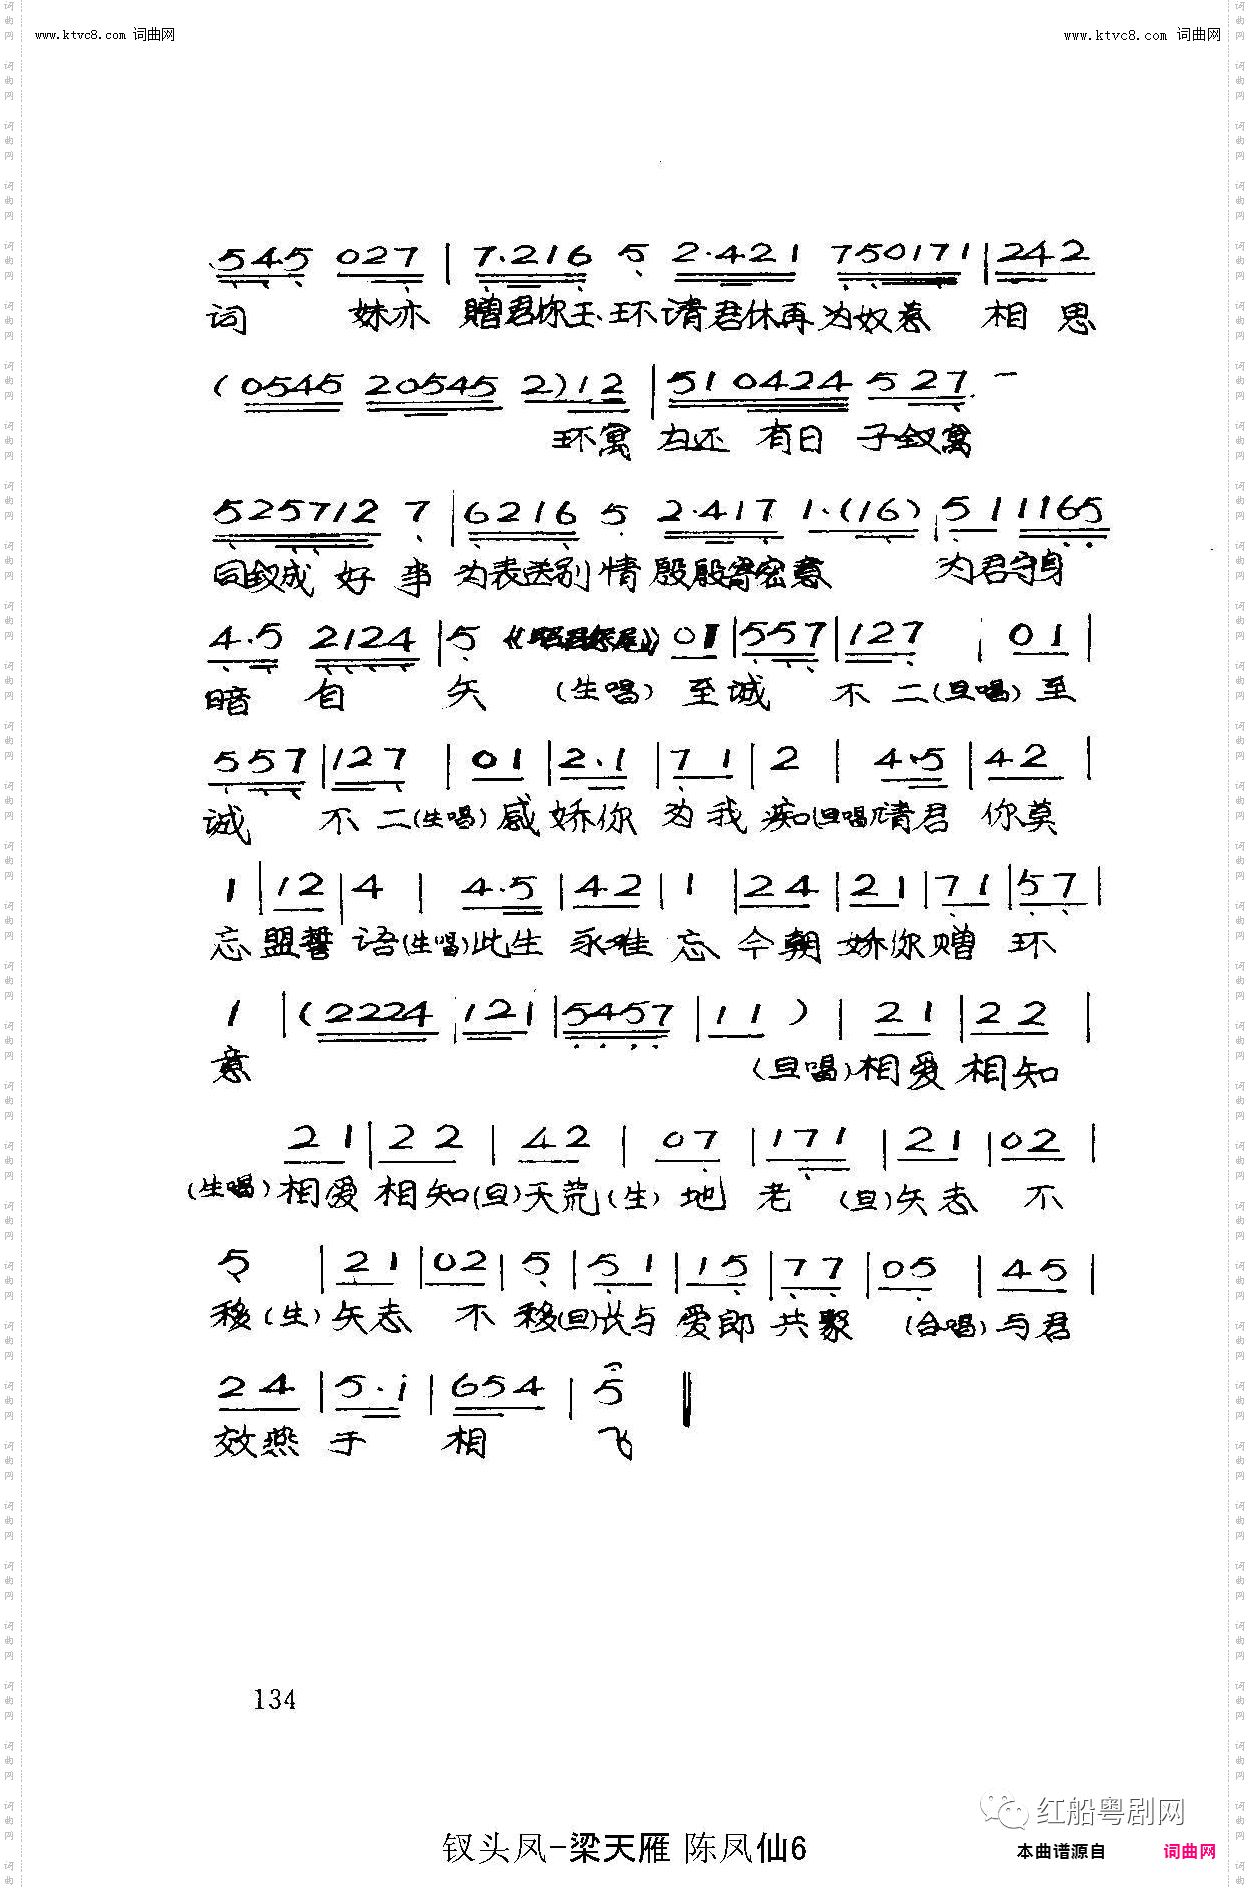 www.ktvc8.com 词曲网 www.ktvc8.com 词曲网
545 027 | 7·216 5 2·421 750171 | 242
词 妹亦 赠君你玉环请君休再为奴意 相思
(0545 20545 2)12 | 510424 527 一
环寓 为还 有日 子钗寓
525712 7 | 6216 5 2·417 1·(16) | 5 1 1165
同钗成 好 事 为表送别情殷殷寄密意 为君守身
4·5 2124 | 5 《昭君怨尾》 01 | 557 | 127 | 01 |
暗 自 矢 (生唱) 至诚 不二(旦唱)至
557 | 127 | 01 | 2·1 | 71 | 2 | 4·5 | 42 |
诚 不二(生唱)感娇你 为我痴(旦唱)请君 你莫
1 | 12 | 4 | 4·5 | 42 | 1 | 24 | 21 | 71 | 57 |
忘盟誓语(生唱)此生 永难忘 今朝娇你赠 环
1 | (2224 | 121 | 5457 | 11) | 21 | 22 |
意 (旦唱)相爱相知
21 | 22 | 42 | 07 | 171 | 21 | 02 |
(生唱)相爱相知(旦)天荒(生)地老 (旦)矢志 不
5 | 21 | 02 | 5 | 51 | 15 | 77 | 05 | 45 |
移(生)矢志 不移(旦)长与 爱郎 共聚 (合唱)与君
24 | 5·i | 654 | 5 ‖
效燕于 相 飞
134
红船粤剧网
钗头凤-梁天雁 陈凤仙6
本曲谱源自 词曲网